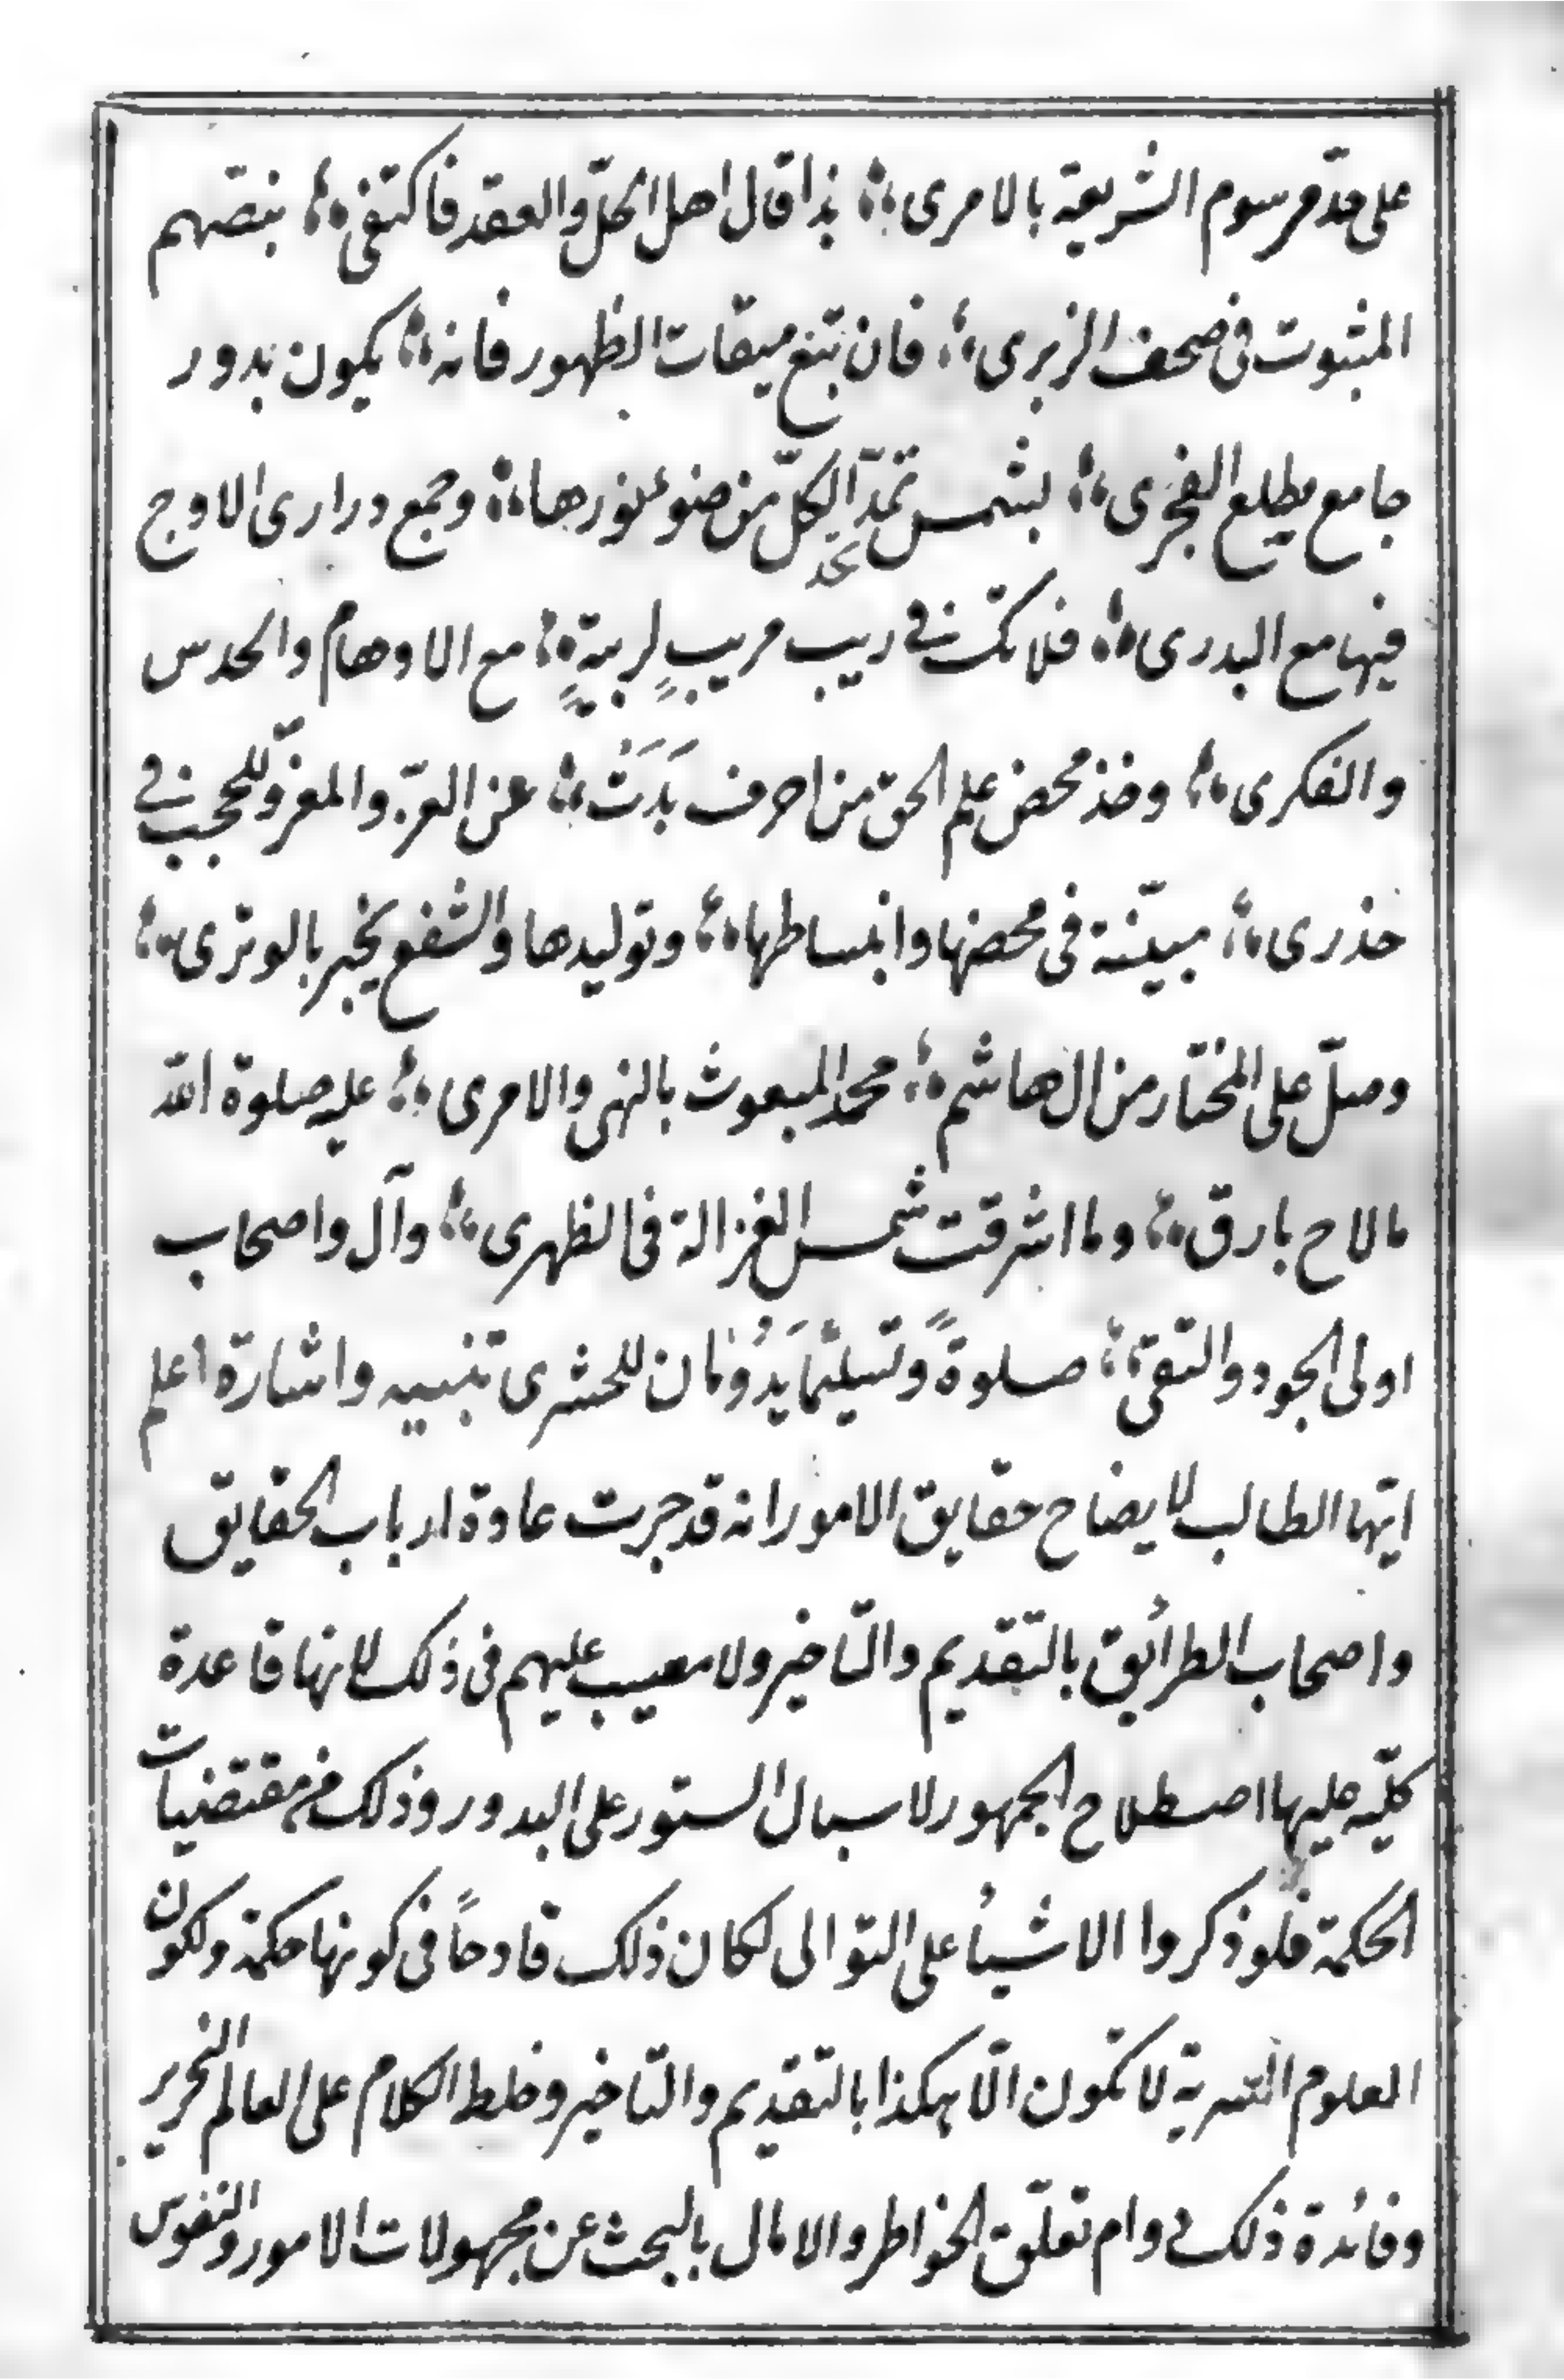 على حدّ مرسوم الشريعة بالامرى ؛ بذا قال اهل الحلّ والعقد فاكتفى ؛ بنصّهم
المثبوت فى صحف الزبرى ؛ فان تبغ ميقات الظهور فانه ؛ يكون بدور
جامع مطلع الفجرى ؛ بشمس تمدّ الكلّ من ضوء نورها ؛ وجمع درارى الاوج
فيها مع البدرى ؛ فلا تك فى ريب مريبٍ لريبةٍ ؛ مع الاوهام والحدس
والفكرى ؛ وخذ محض علم الحق من احرف بَدَتْ ؛ عن العرّ والمغرّ وللحجب فى
حذرى ؛ مبيّنة فى محضها وانبساطها ؛ وتوليدها والشفع يخبر بالوترى ؛
وصلّ على المختار من ال هاشم ؛ محمد المبعوث بالنهى والامرى ؛ عليه صلوة الله
مالاح بارق ؛ وما اشرقت شمس الغزالة فى الظهرى ؛ وآل واصحاب
اولى الجود والتقى ؛ صلوةً وتسليمًا يَدُومان للحشرى تنبيه واشارة اعلم
ايّها الطالب لايضاح حقايق الامور انه قد جرت عادة ارباب الحقايق
واصحاب الطرائق بالتقديم والتأخير ولا معيب عليهم فى ذلك لانها قاعدة
كليّه عليها اصطلاح الجمهور لاسبال الستور على البدور وذلك من مقتضيات
الحكمة فلو ذكروا الاشيأ على التوالى لكان ذلك قادحاً فى كونها حكمة ولكون
العلوم السّرية لا تكون الّا هكذا بالتقديم والتاخير وخلط الكلام على العالم النحرير
وفائدة ذلك دوام تعلّق الخواطر والامال بالبحث عن مجهولات الامور والنفوس